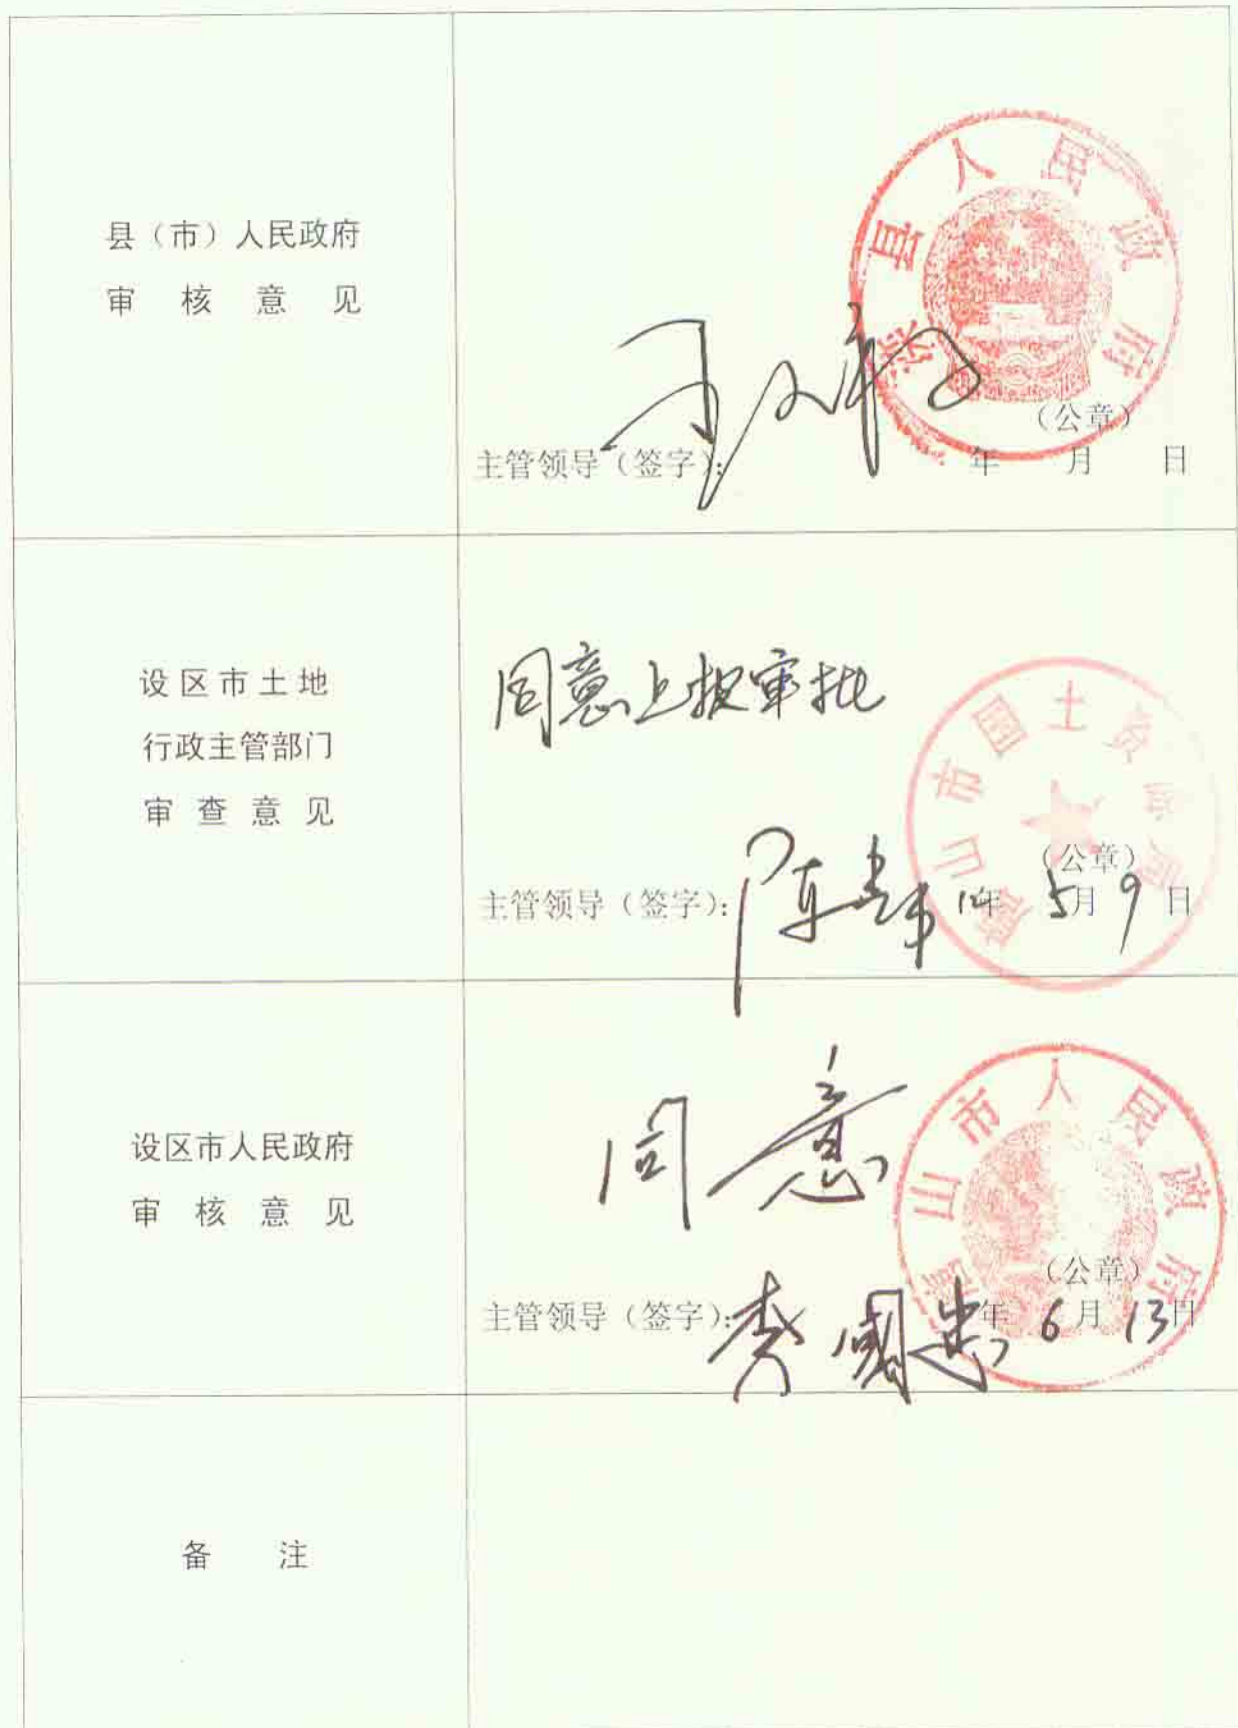 县（市）人民政府
审核意见
县人民政府
（公章）
主管领导（签字）： 年 月 日
设区市土地
行政主管部门
审查意见
同意上报审批
山市国土资源局
（公章）
主管领导（签字）：陈 年 5月 9日
设区市人民政府
审核意见
同意
山市人民政府
（公章）
主管领导（签字）： 国忠 年 6月 13日
备注